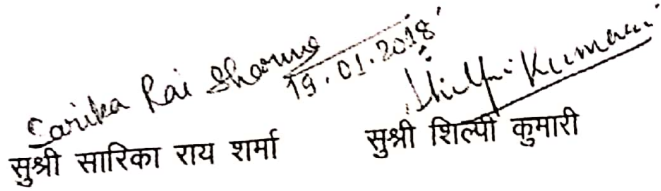 Sarika Rai Sharma 19.01.2018 Shilpi Kumari
सुश्री सारिका राय शर्मा सुश्री शिल्पी कुमारी